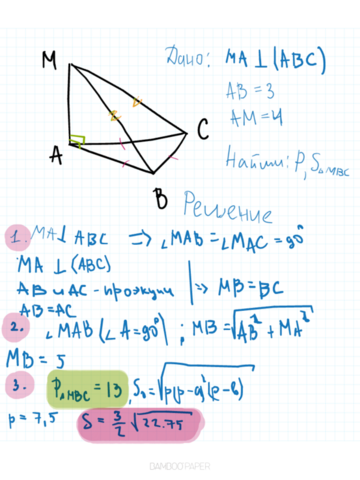 M
A
C
B
Дано: MA ⊥ (ABC)
AB = 3
AM = 4
Найти: P, S△MBC
Решение
1. MA ⊥ ABC ⇒ ∠MAB = ∠MAC = 90°
MA ⊥ (ABC)
AB и AC - проэкции
AB = AC
⇒ MB = BC
2. ∠MAB (∠A = 90°) ; MB = √AB² + MA²
MB = 5
3. P△MBC = 13
p = 7,5 S = 3/2 √22.75
DAMOOOPAPER